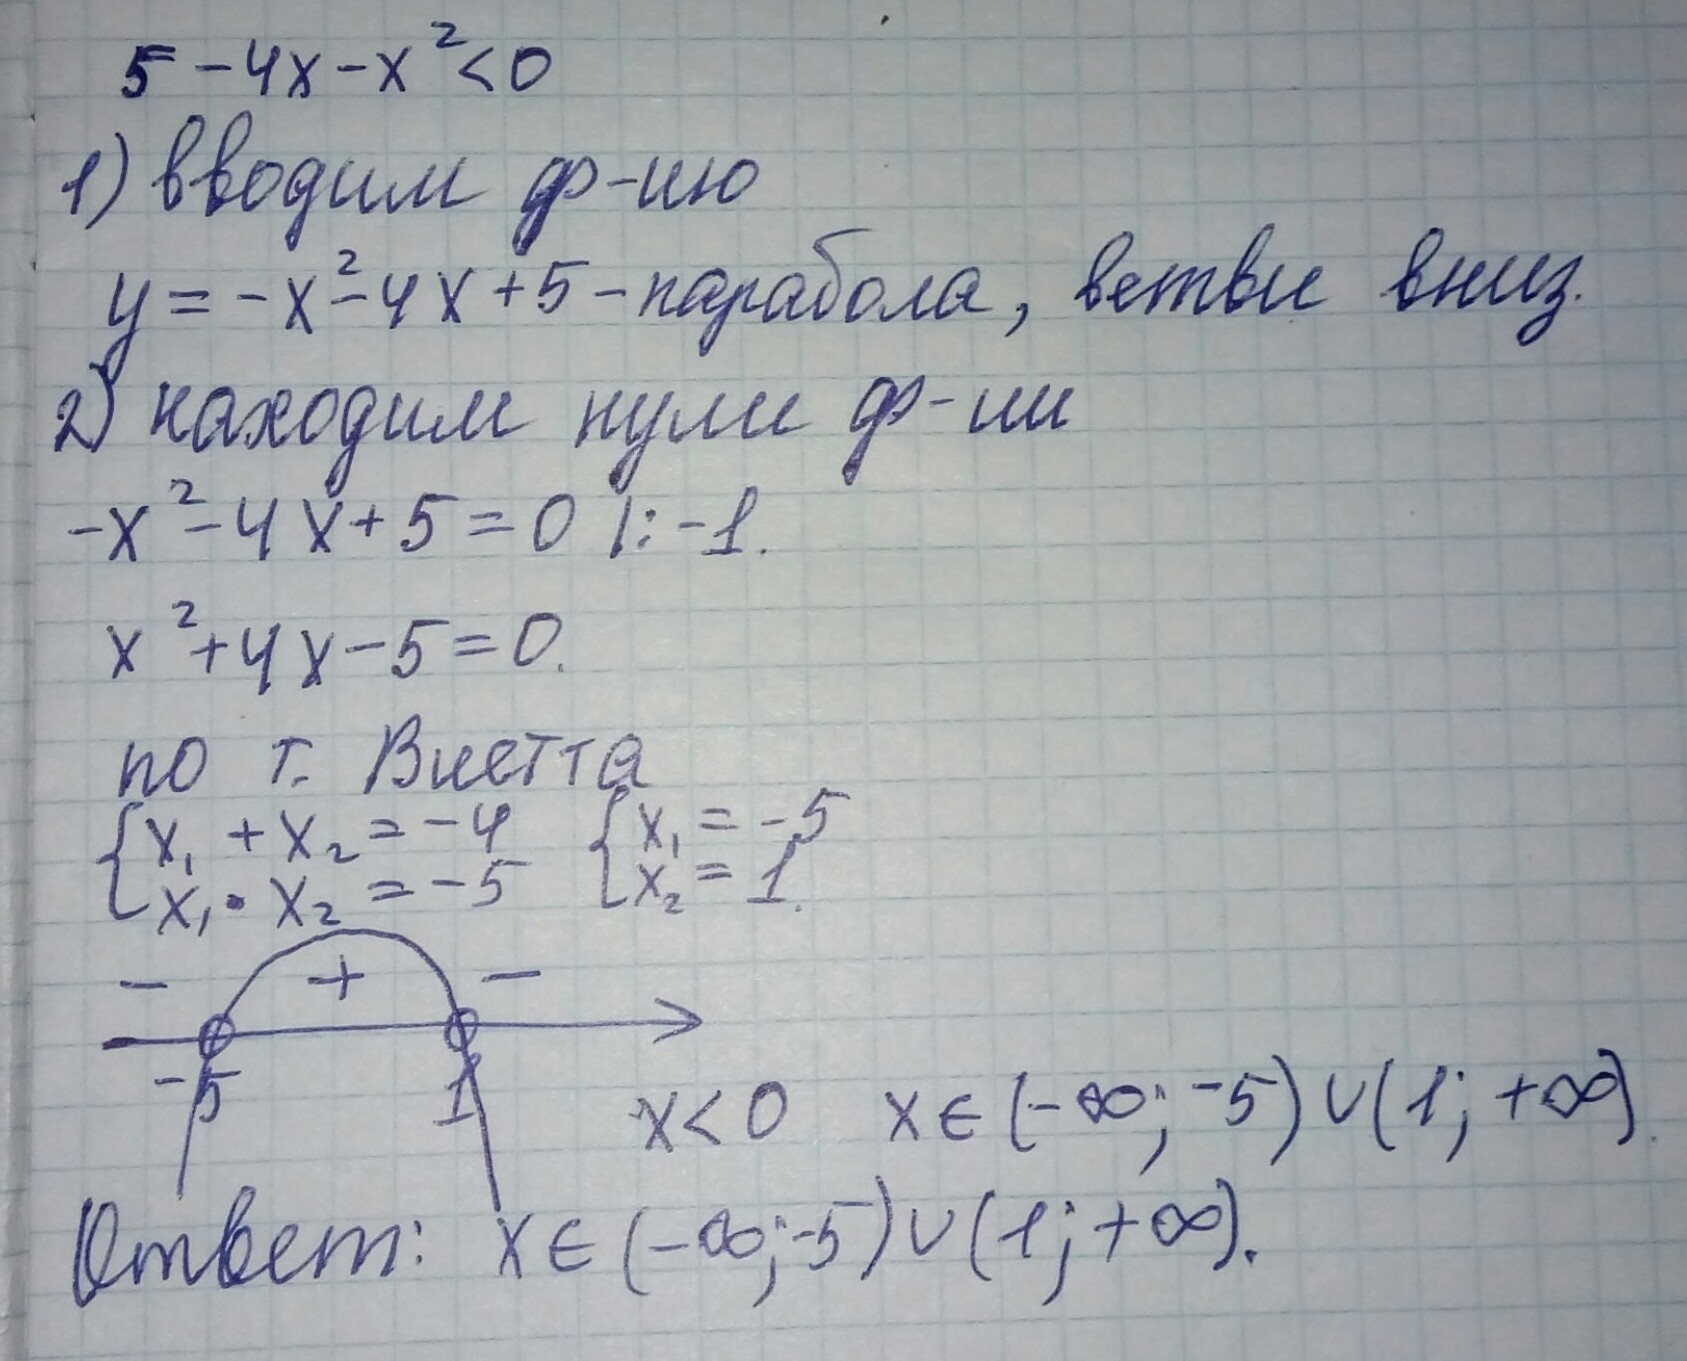 5-4x-x²<0
1) вводим ф-ию
y=-x²-4x+5-парабола, ветви вниз.
2) находим нули ф-ии
-x²-4x+5=0 |:-1.
x²+4x-5=0.
по т. Виетта
{x₁+x₂=-4 {x₁=-5
x₁·x₂=-5 x₂=1.
- + -
-5 1
x<0 x∈(-∞;-5)∪(1;+∞).
Ответ: x∈(-∞;-5)∪(1;+∞).